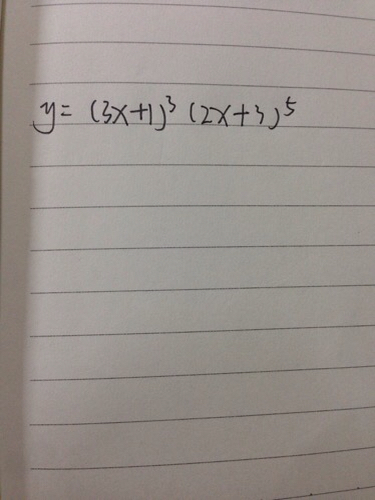 y = (3x+1)³ (2x+3)⁵